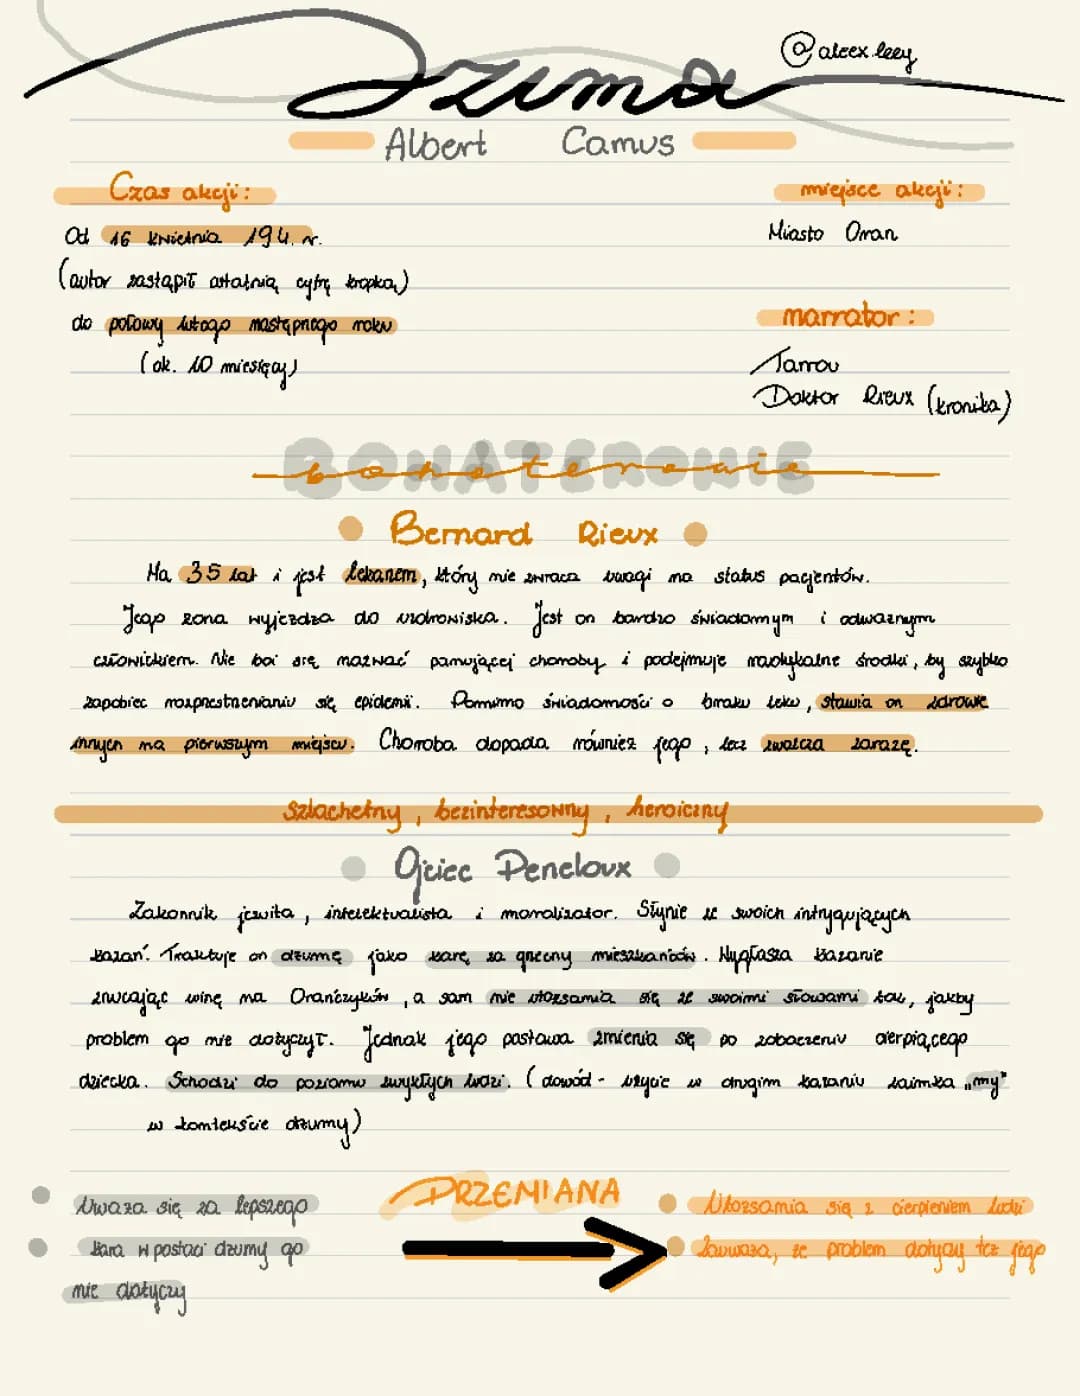 @aleex.leey
Dżuma
Albert Camus
Czas akcji:
Od 16 kwietnia 194. r.
(autor zastąpił ostatnią cyfrę kropką)
do połowy lutego następnego roku
(ok. 10 miesięcy)
miejsce akcji:
Miasto Oran
narrator:
Tarrou
Doktor Rieux (kronika)
BOHATEROWIE
bohaterowie
Bernard Rieux
Ma 35 lat i jest lekarzem, który nie zwraca uwagi na status pacjentów.
Jego żona wyjeżdża do uzdrowiska. Jest on bardzo świadomym i odważnym
człowiekiem. Nie boi się nazwać panującej choroby i podejmuje radykalne środki, by szybko
zapobiec rozprestrzenianiu się epidemii. Pomimo świadomości o braku leku, stawia on zdrowie
innych na pierwszym miejscu. Choroba dopada również jego, lecz zwalcza zarazę.
szlachetny, bezinteresowny, heroiczny
Ojciec Peneloux
Zakonnik jezuita, intelektualista i moralizator. Słynie ze swoich intrygujących
kazań. Traktuje on dżumę jako karę za grzechy mieszkańców. Wygłasza kazanie
zrzucając winę na Orańczyków, a sam nie utożsamia się ze swoimi słowami tak, jakby
problem go nie dotyczył. Jednak jego postawa zmienia się po zobaczeniu cierpiącego
dziecka. Schodzi do poziomu zwykłych ludzi. (dowód - użycie w drugim kazaniu zaimka „my"
w kontekście dżumy)
PRZEMIANA
Uważa się za lepszego
kara w postaci dżumy go
nie dotyczy
Utożsamia się z cierpieniem ludzi
Zauważa, że problem dotyczy też jego